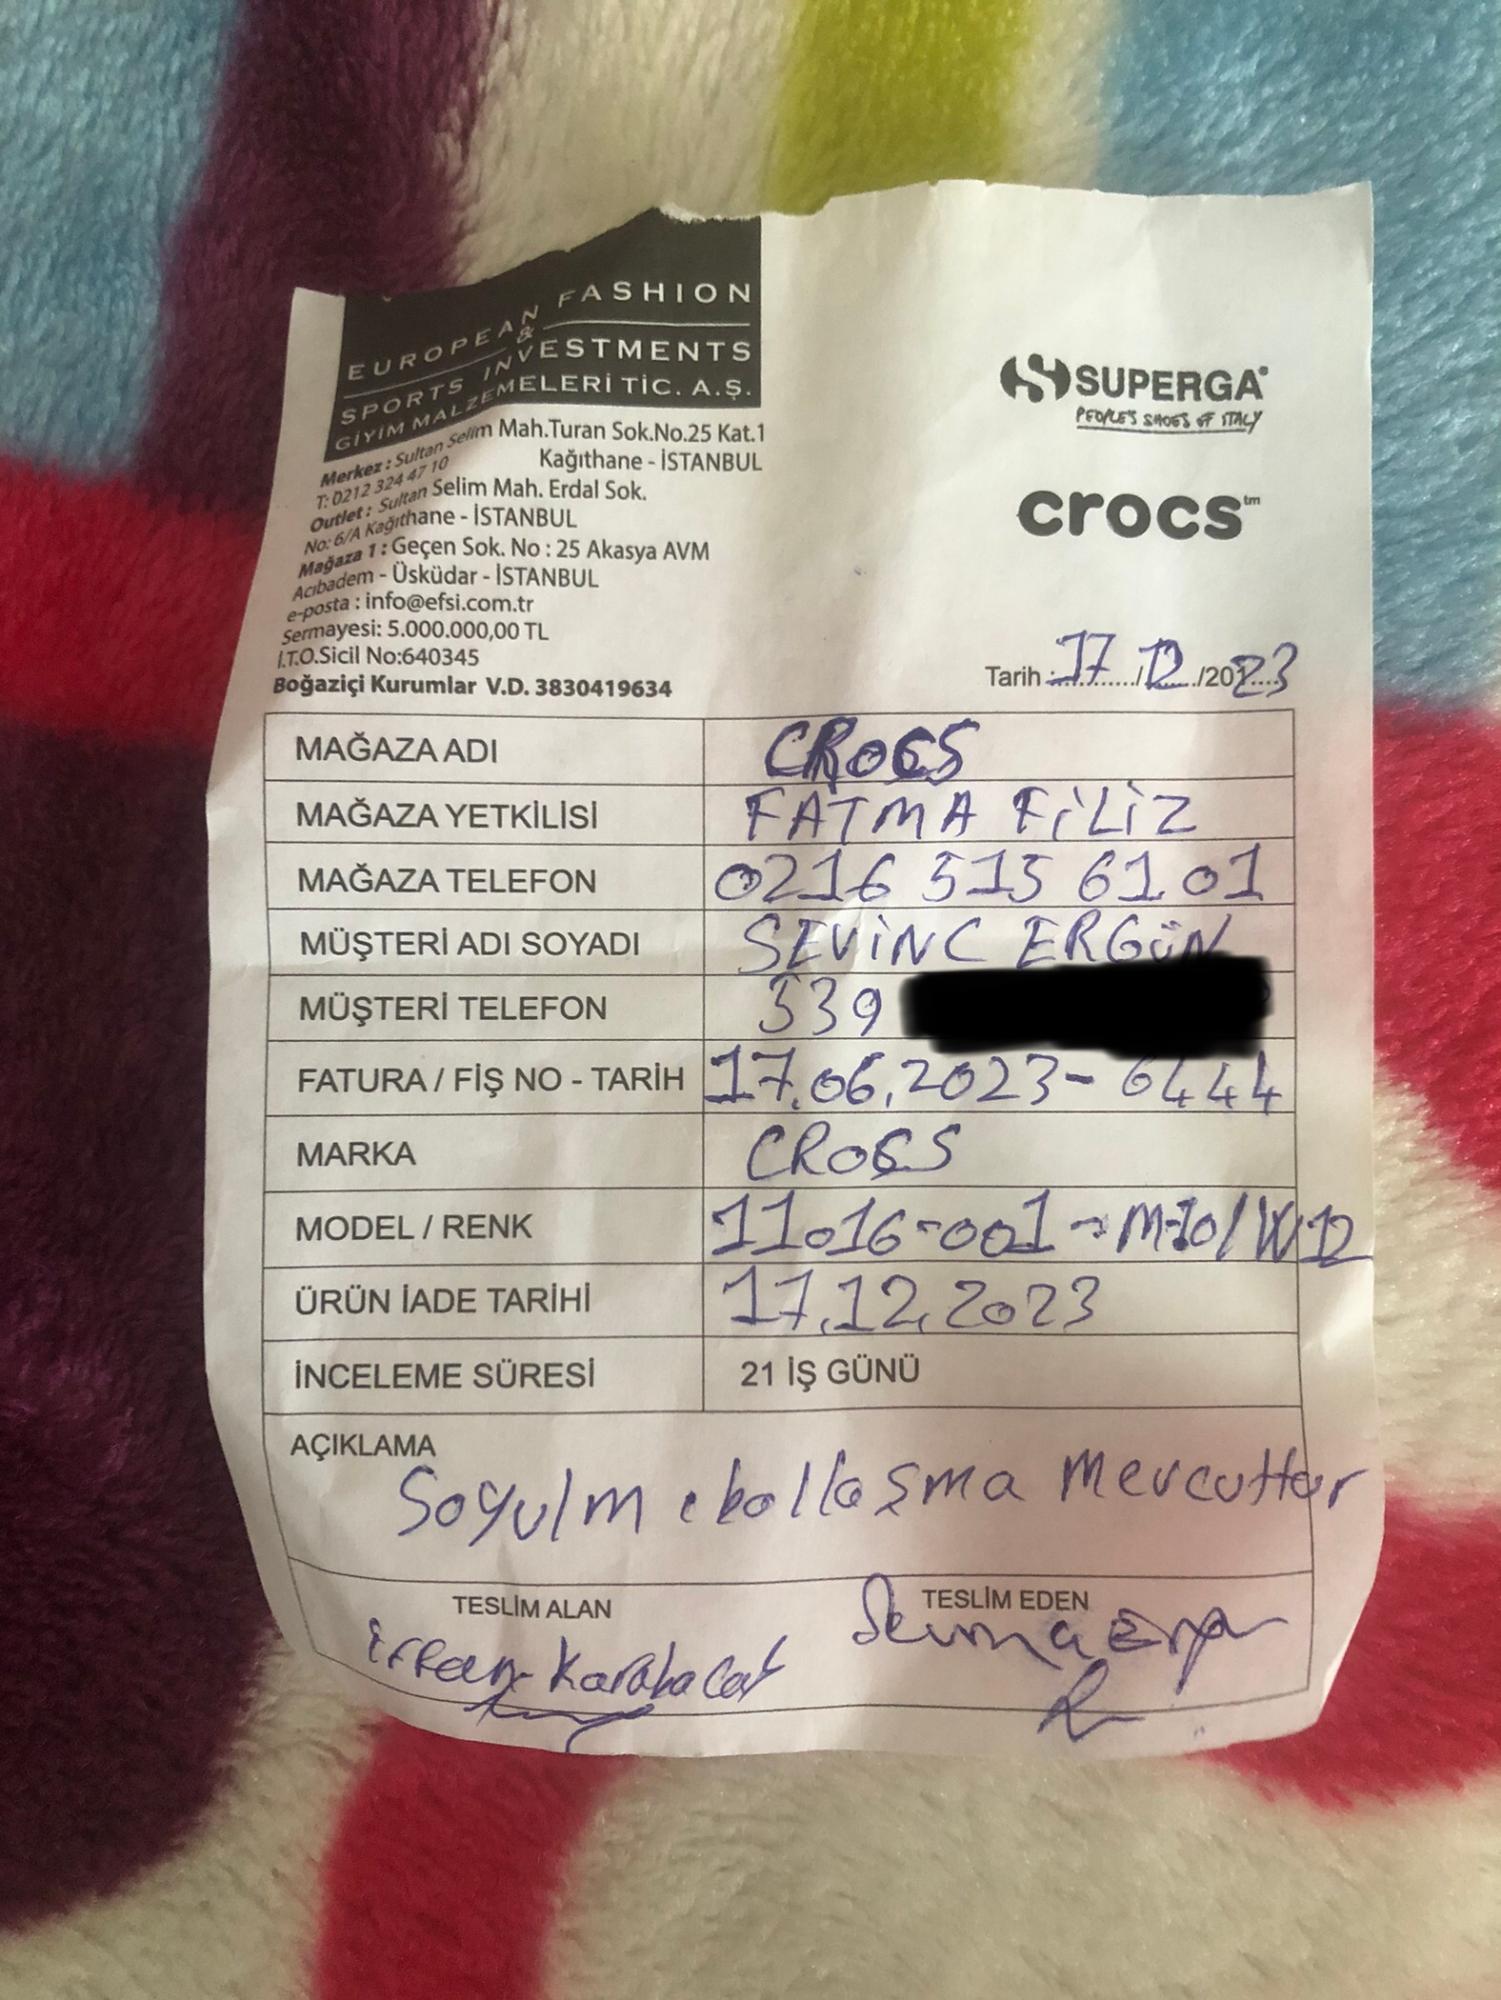 EUROPEAN FASHION
&
SPORTS INVESTMENTS
GİYİM MALZEMELERİ TİC. A.Ş.
Merkez : Sultan Selim Mah.Turan Sok.No.25 Kat.1
T: 0212 324 47 10 Kağıthane - İSTANBUL
Outlet : Sultan Selim Mah. Erdal Sok.
No: 6/A Kağıthane - İSTANBUL
Mağaza 1 : Geçen Sok. No : 25 Akasya AVM
Acıbadem - Üsküdar - İSTANBUL
e-posta : info@efsi.com.tr
Sermayesi: 5.000.000,00 TL
İ.T.O.Sicil No:640345
Boğaziçi Kurumlar V.D. 3830419634
SUPERGA
PEOPLE'S SHOES OF ITALY
crocs™
Tarih : 17 / 12 /2023
MAĞAZA ADI CROCS
MAĞAZA YETKİLİSİ FATMA FİLİZ
MAĞAZA TELEFON 0216 515 61 01
MÜŞTERİ ADI SOYADI SEVİNC ERGÜN
MÜŞTERİ TELEFON 539
FATURA / FİŞ NO - TARİH 17.06.2023- 6444
MARKA CROCS
MODEL / RENK 11016-001-M10/W12
ÜRÜN İADE TARİHİ 17.12.2023
İNCELEME SÜRESİ 21 İŞ GÜNÜ
AÇIKLAMA
Soyulm mevcuttur
TESLİM ALAN TESLİM EDEN
Karabacak